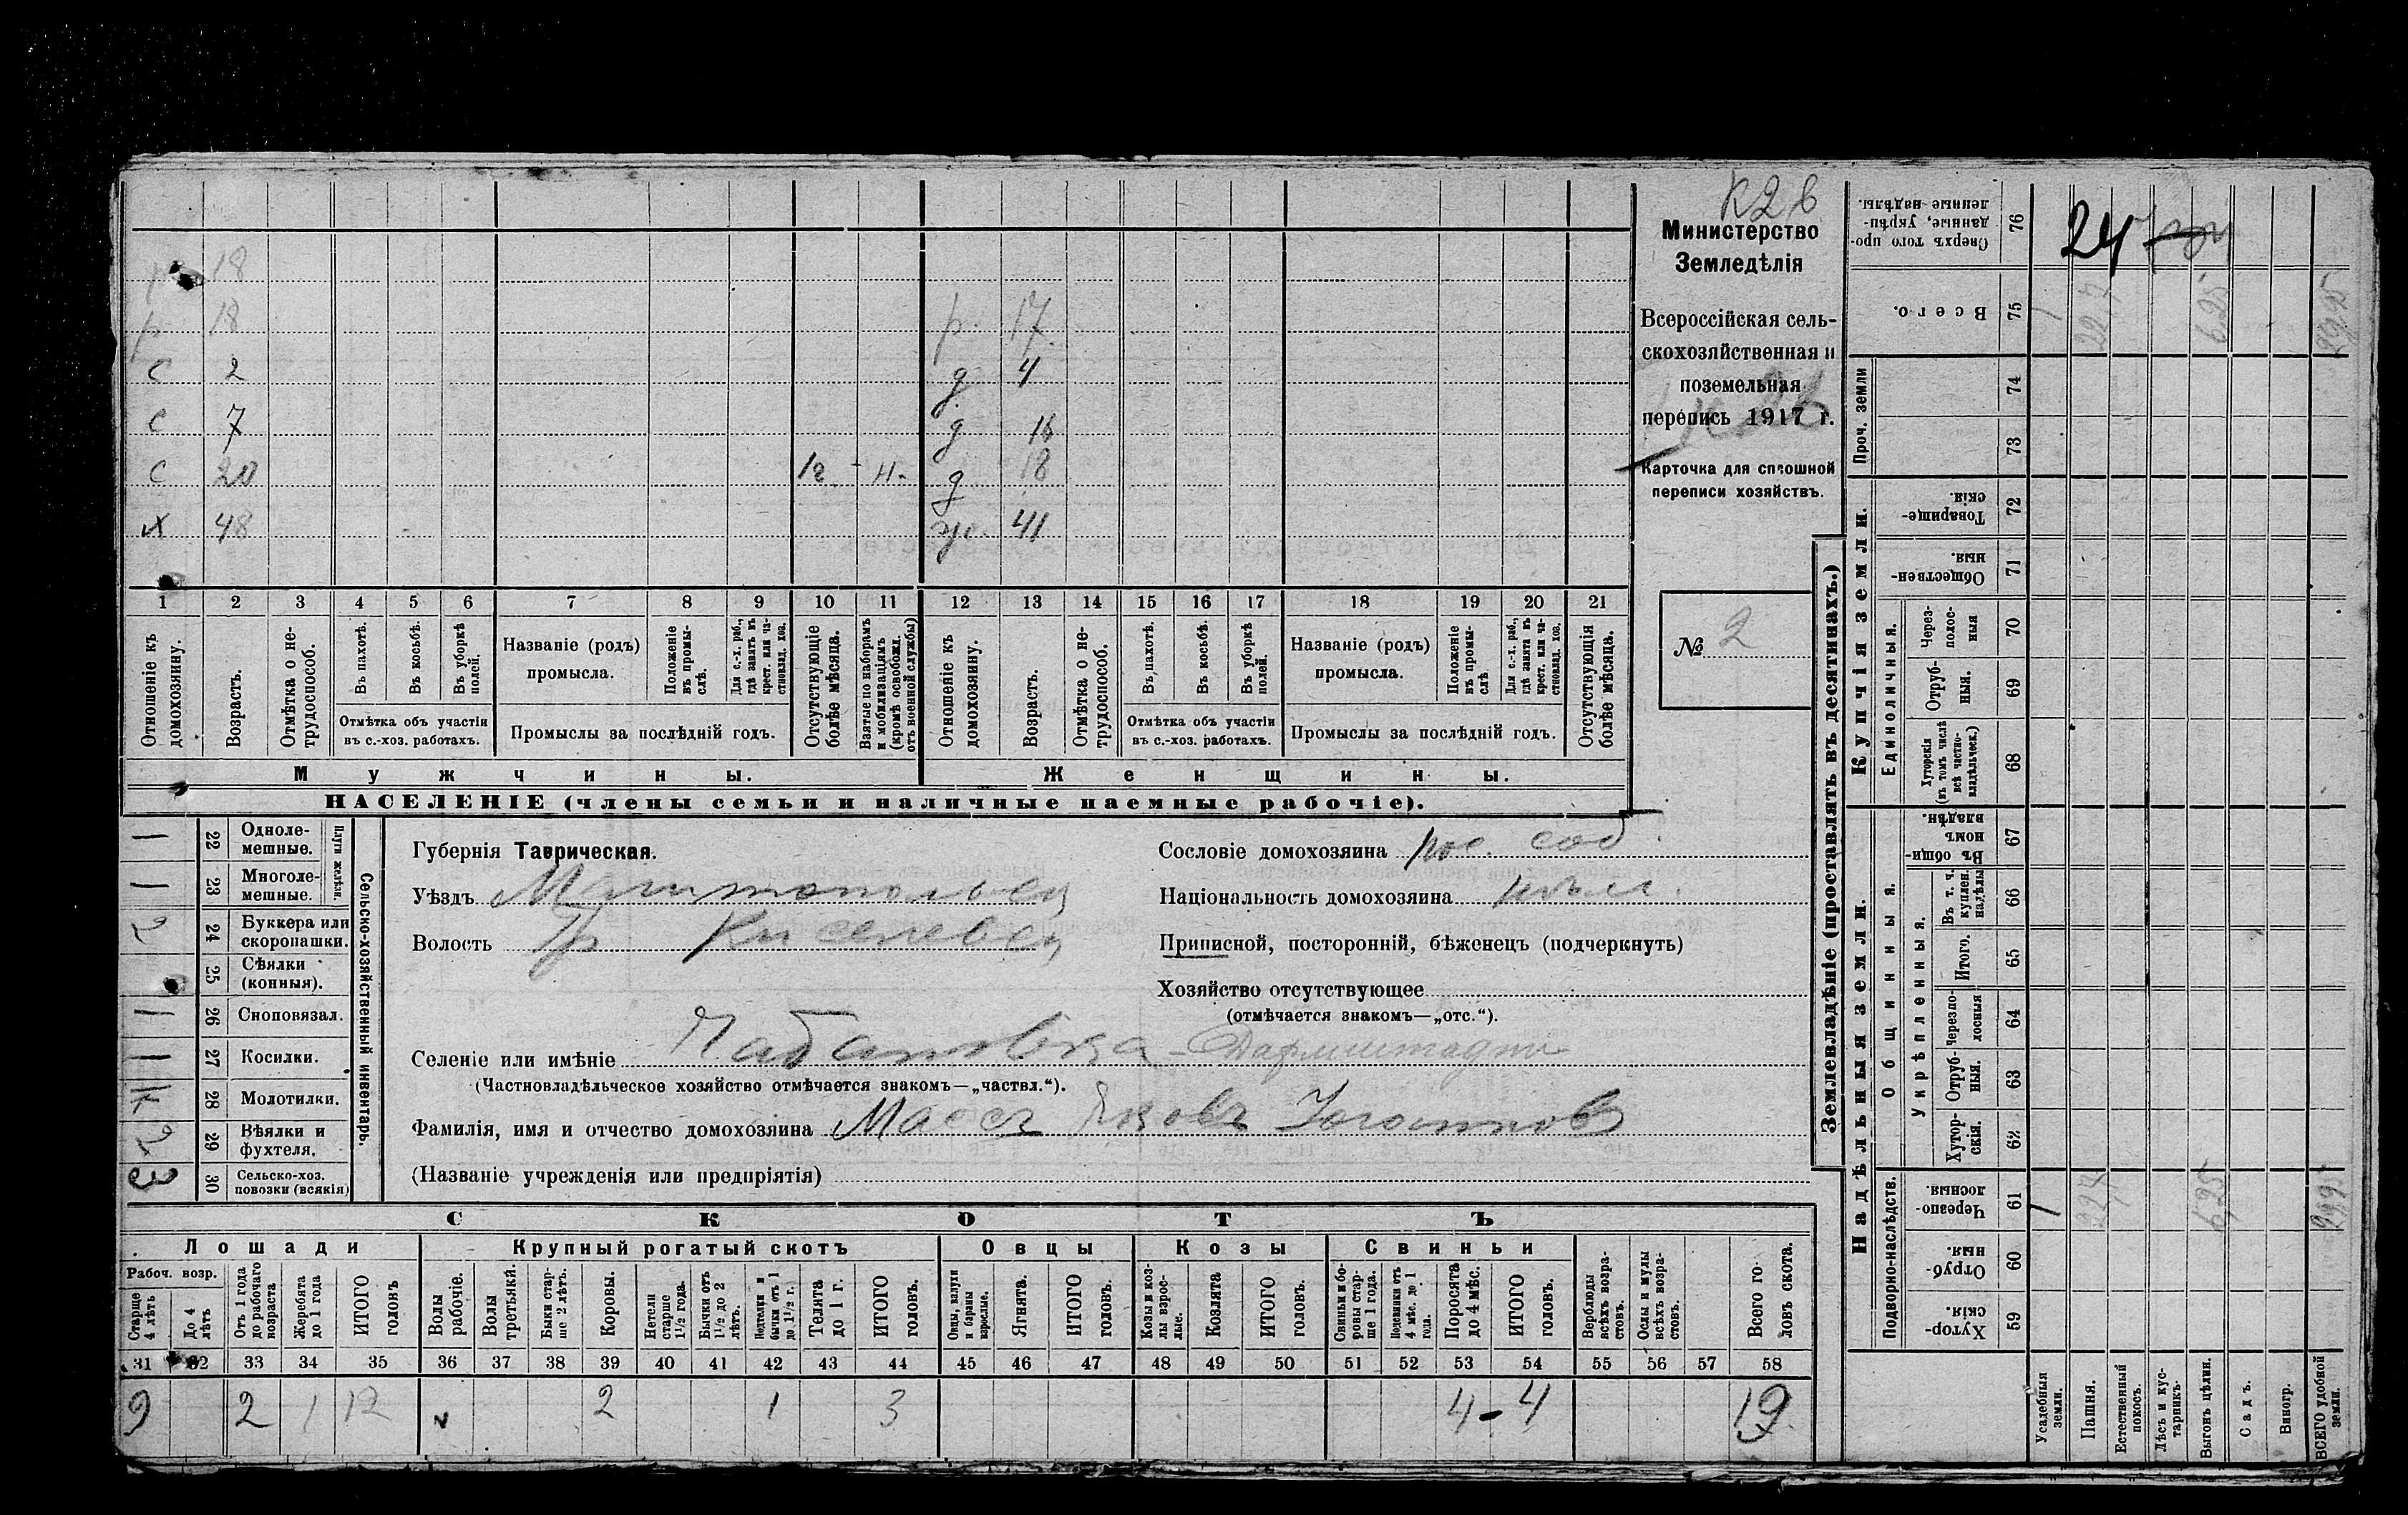 К2в
Министерство
Земледѣлія
Всероссійская сель-
скохозяйственная и
поземельная
перепись 1917 г.
Карточка для сплошной
переписи хозяйствъ.
№ 2
18
р 18 р. 17
с 2 д 4
с 7 д 16
с 20 18 д 18
х 48 же. 41
1 2 3 4 5 6 7 8 9 10 11 12 13 14 15 16 17 18 19 20 21
Отношеніе къ домохозяину.
Возрастъ.
Отмѣтка о не-трудоспособ.
Въ пахотѣ.
Въ косьбѣ.
Въ уборкѣ полей.
Отмѣтка объ участіи въ с.-хоз. работахъ.
Названіе (родъ) промысла.
Положеніе въ промы-слѣ.
Для с.-х. раб., гдѣ занятъ въ крест. или ча-стновлад. хоз.
Промыслы за послѣдній годъ.
Отсутствующіе болѣе мѣсяца.
Взятые по наборамъ и мобилизаціямъ (кромѣ освобожд. отъ военной службы)
Отношеніе къ домохозяину.
Возрастъ.
Отмѣтка о не-трудоспособ.
Въ пахотѣ.
Въ косьбѣ.
Въ уборкѣ полей.
Отмѣтка объ участіи въ с.-хоз. работахъ.
Названіе (родъ) промысла.
Положеніе въ промы-слѣ
Для с.-х. раб., гдѣ занята въ крест. или ча-стновлад. хоз.
Промыслы за послѣдній годъ.
Отсутствующія болѣе мѣсяца.
Мужчины. Женщины.
НАСЕЛЕНІЕ (члены семьи и наличные наемные рабочіе).
Сельско-хозяйственный инвентарь.
Плуги желѣзн.
1 22 Одноле-мешные.
1 23 Многоле-мешные.
2 24 Буккера или скоропашки.
25 Сѣялки (конныя).
1 26 Сноповязал.
1 27 Косилки.
28 Молотилки.
2 29 Вѣялки и фухтеля.
3 30 Сельско-хоз. повозки (всякія)
Губернія Таврическая.
Уѣздъ
Волость
Селеніе или имѣніе Чабановка - Дармштадт
(Частновладѣльческое хозяйство отмѣчается знакомъ—„частвл.“).
Фамилія, имя и отчество домохозяина Маасъ Яковъ Иоганновъ
(Названіе учрежденія или предпріятія)
Сословіе домохозяина пос. соб.
Національность домохозяина нѣм.
Приписной, посторонній, бѣженецъ (подчеркнуть)
Хозяйство отсутствующее
(отмѣчается знакомъ—„отс.“).
СКОТЪ
Лошади Крупный рогатый скотъ Овцы Козы Свиньи
Рабоч. возр.
Старше 4 лѣтъ
До 4 лѣтъ
Отъ 1 года до рабочаго возраста
Жеребята до 1 года
ИТОГО головъ
Волы рабочіе.
Волы третьякй.
Быки стар-ше 2 лѣтъ.
Коровы.
Нетели старше 1½ года.
Бычки отъ 1½ до 2 лѣтъ.
Подтелки и бычки отъ 1 до 1½ г.
Телята до 1 г.
ИТОГО головъ.
Овцы, валухи и бараны взрослые.
Ягнята.
ИТОГО головъ.
Козы и коз-лы взрос-лые.
Козлята
ИТОГО головъ.
Свиньи и бо-ровы стар-ше 1 года.
Подсвинки отъ 4 мѣс. до 1 года.
Поросята до 4 мѣс.
ИТОГО головъ.
Верблюды всѣхъ возра-стовъ.
Ослы и мулы всѣхъ возра-стовъ.
Всего го-ловъ скота.
31 32 33 34 35 36 37 38 39 40 41 42 43 44 45 46 47 48 49 50 51 52 53 54 55 56 57 58
9 2 1 12 2 1 3 4 - 4 19
Землевладѣніе (проставлять въ десятинахъ.)
Надѣльныя земли. Купчія земли. Проч. земли
Подворно-наслѣдств.
Общинныя.
Укрѣпленныя.
Единоличныя.
Хутор-скія. 59
Отруб-ныя. 60
Черезпо-лосныя. 61
Хутор-скія. 62
Отруб-ныя. 63
Черезпо-лосныя 64
Итого. 65
Въ т. ч. куплен. надѣлы 66
Въ общи-номъ владѣн. 67
Хуторскія (въ томъ числѣ всѣ частно-владѣльческ.) 68
Отруб-ныя. 69
Через-полос-ныя 70
Обществен-ныя. 71
Товарище-скія. 72
73
74
Всего. 75
Сверхъ того про-данные, укрѣп-ленные надѣлы. 76
24
Усадебныя земли. 1 1
Пашня. 22,7 22,7
Естественный покосъ.
Лѣсъ и кус-тарникъ.
Выгонъ цѣлин. 6,25 6,25
Садъ.
Виногр.
ВСЕГО удобной земли. 29,95 29,95